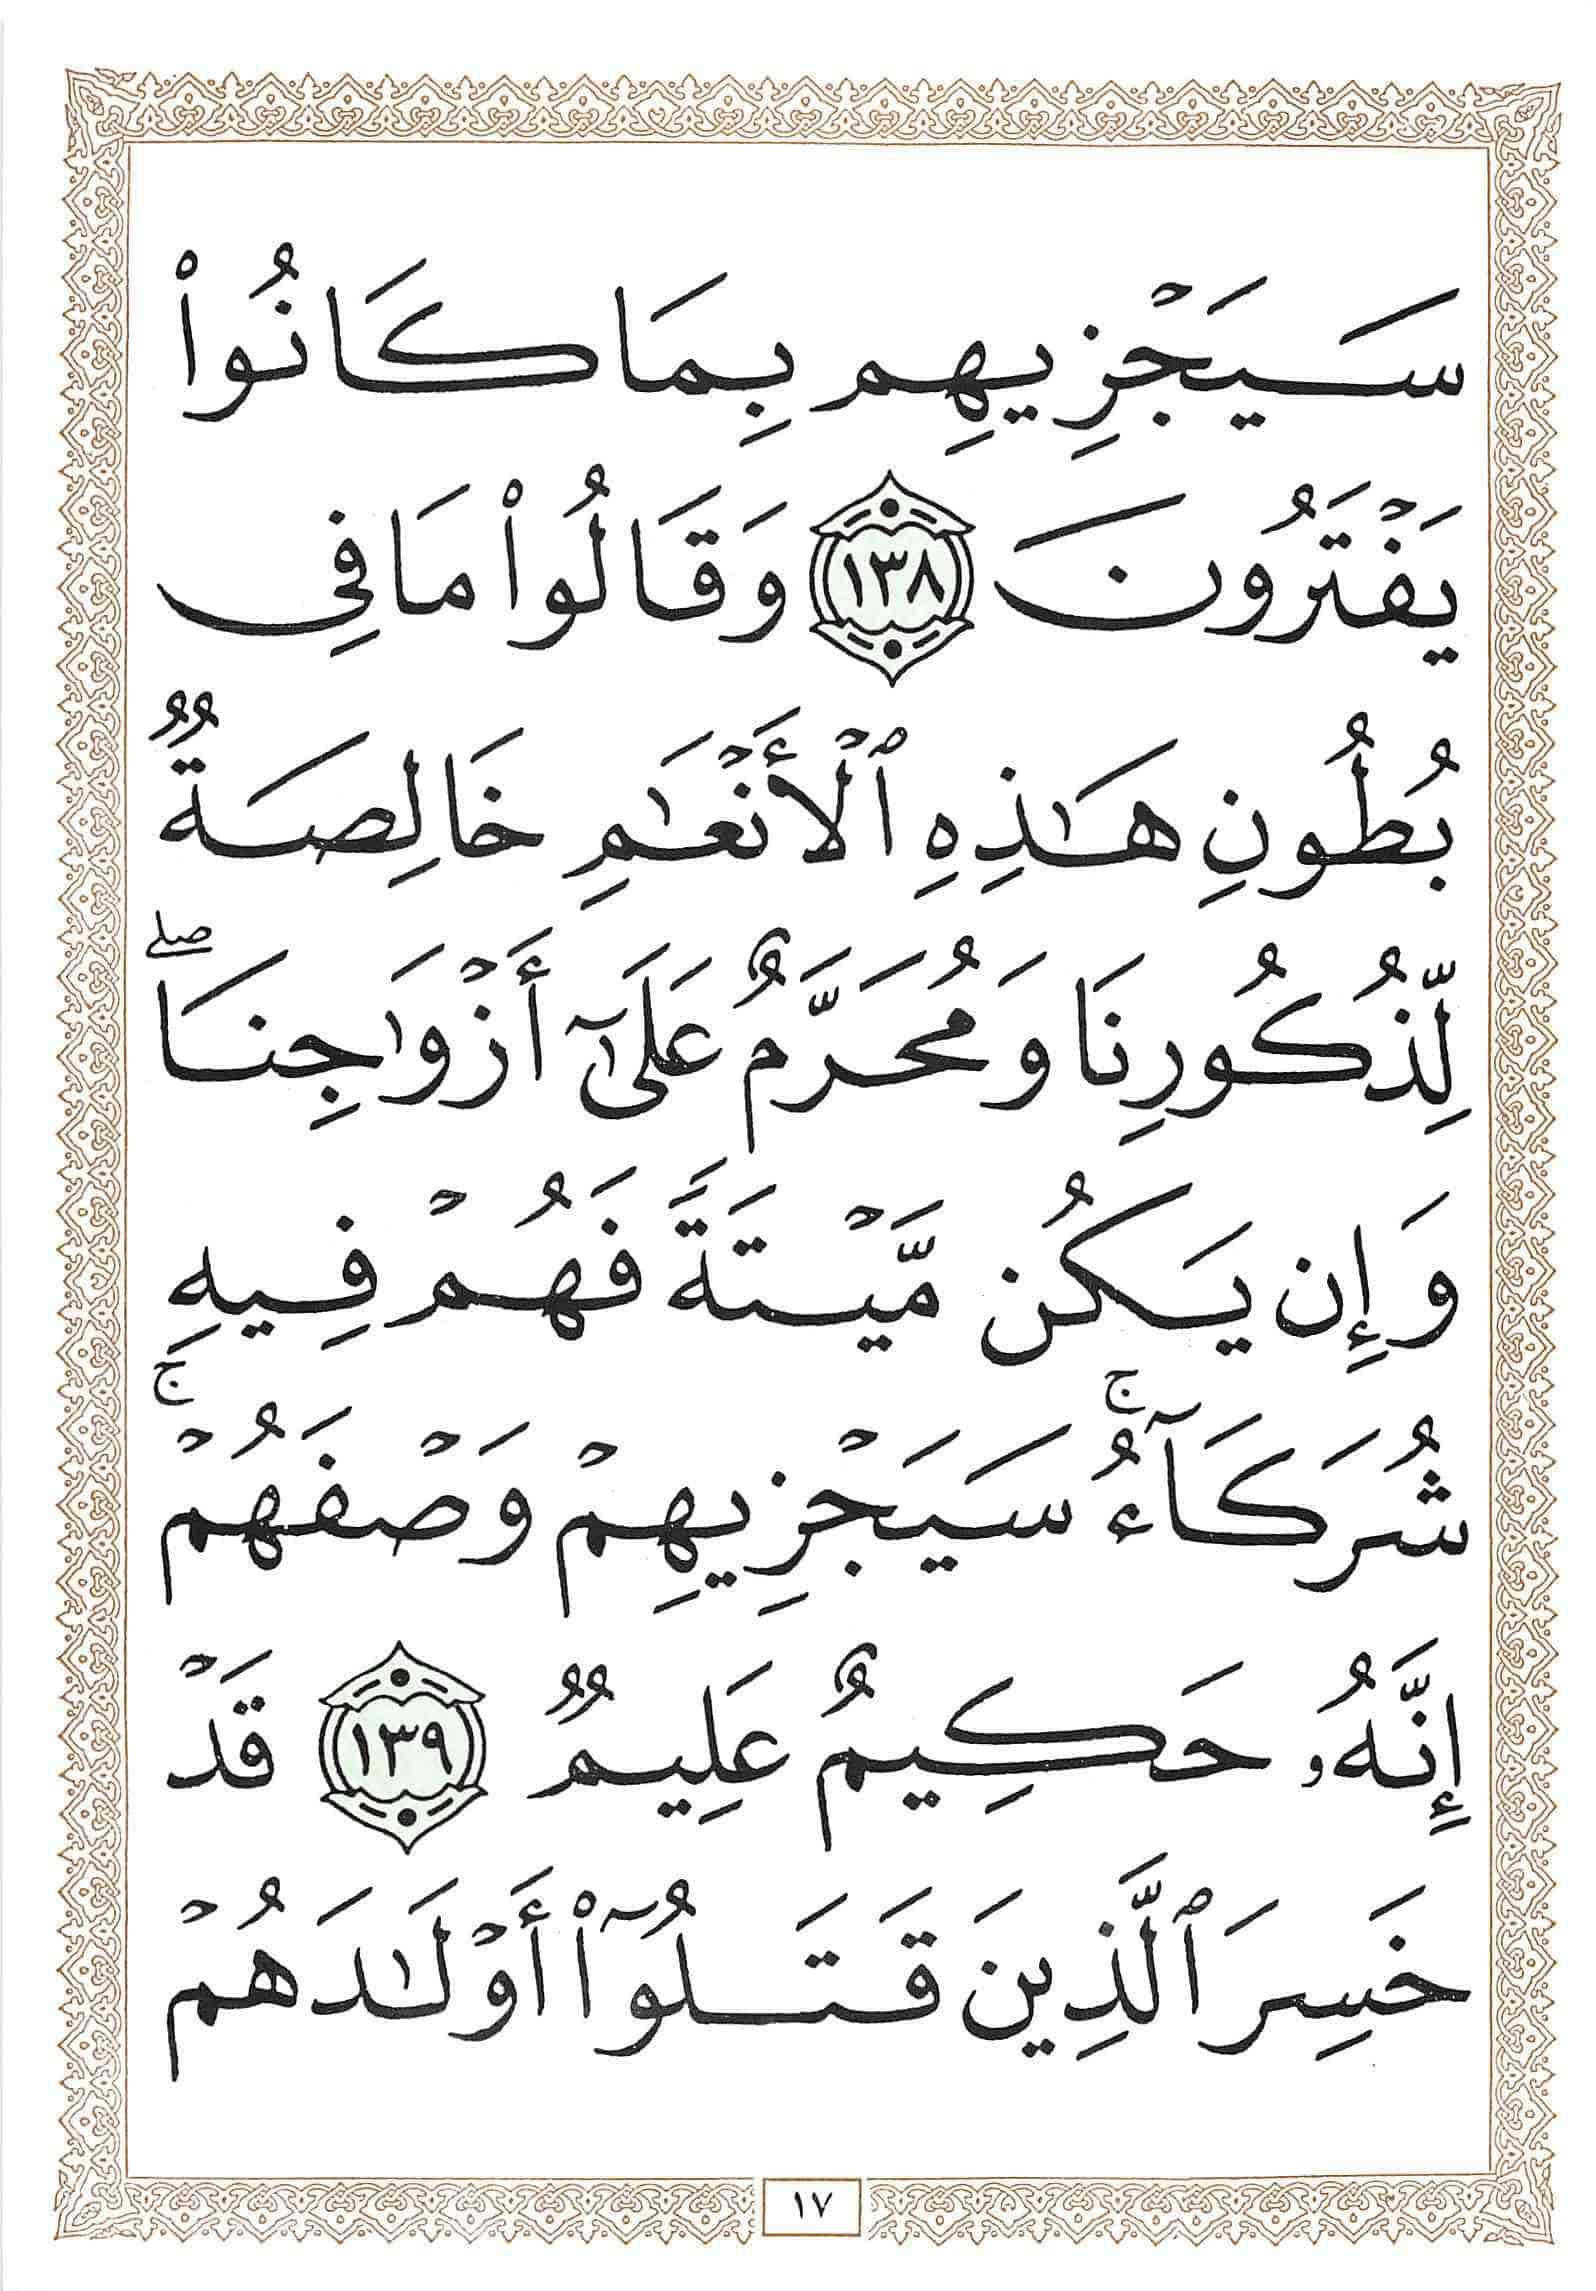 سَيَجْزِيهِم بِمَا كَانُوا۟
يَفْتَرُونَ ١٣٨ وَقَالُوا۟ مَا فِى
بُطُونِ هَـٰذِهِ ٱلْأَنْعَـٰمِ خَالِصَةٌ
لِّذُكُورِنَا وَمُحَرَّمٌ عَلَىٰٓ أَزْوَٰجِنَا ۖ
وَإِن يَكُن مَّيْتَةً فَهُمْ فِيهِ
شُرَكَآءُ ۚ سَيَجْزِيهِمْ وَصْفَهُمْ ۚ
إِنَّهُۥ حَكِيمٌ عَلِيمٌ ١٣٩ قَدْ
خَسِرَ ٱلَّذِينَ قَتَلُوٓا۟ أَوْلَـٰدَهُمْ
١٧